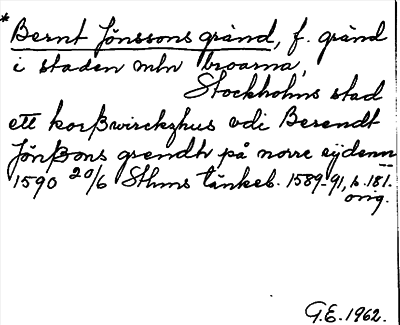 * Bernt Jönssons gränd, f. gränd
i staden mln broarna,
Stockholms stad
ett korßwirckzhus vdi Berendt
Jönßons grendh på norre sijdenn
1590 20/6 Sthms tänkeb. 1589-91, s. 181.
orig.
G.E. 1962.